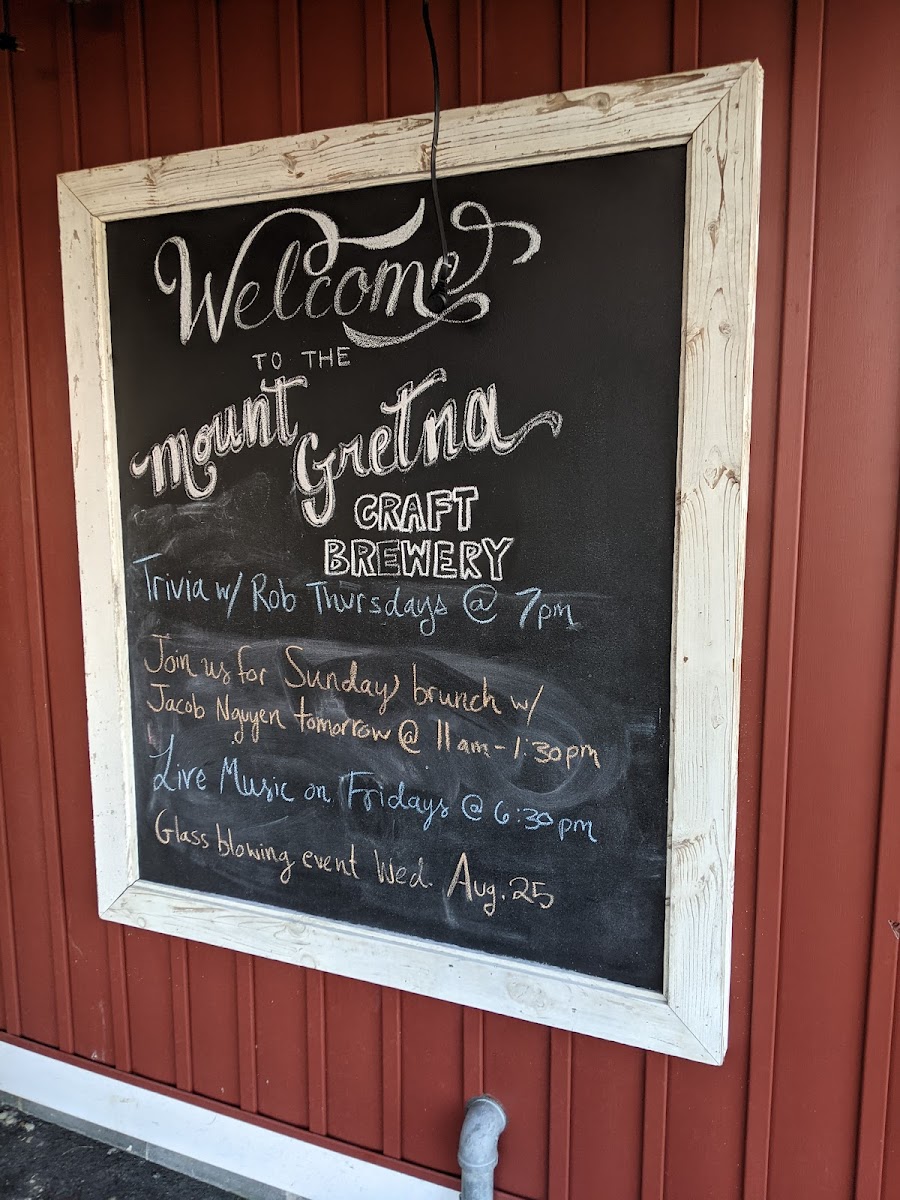 Welcome
TO THE
Mount
Gretna
CRAFT
BREWERY
Trivia w/ Rob Thursdays @ 7pm
Join us for Sunday brunch w/
Jacob Nguyen tomorrow @ 11am - 1:30pm
Live Music on Fridays @ 6:30pm
Glass blowing event Wed. Aug. 25